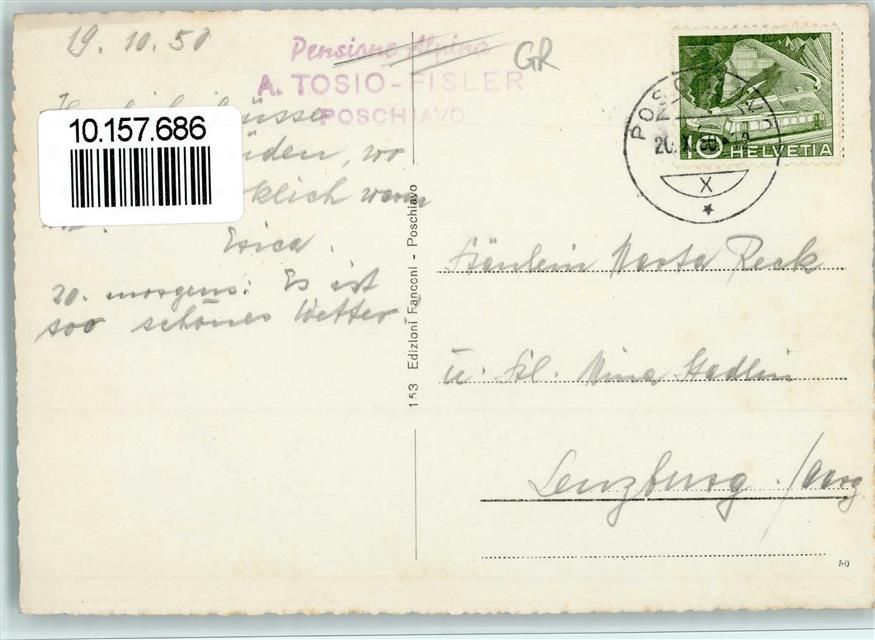 19.10.50
Pensione Alpina
A. TOSIO-FISLER
POSCHIAVO
GR
10.157.686
wo
Erica.
20. morgens: Es ist
soo schönes Wetter.
153 Edizioni Fanconi - Poschiavo
10 HELVETIA
X
Fräulein Marta Reck
u. Frl. Nina Stadlin
Lenzburg /Aarg
50